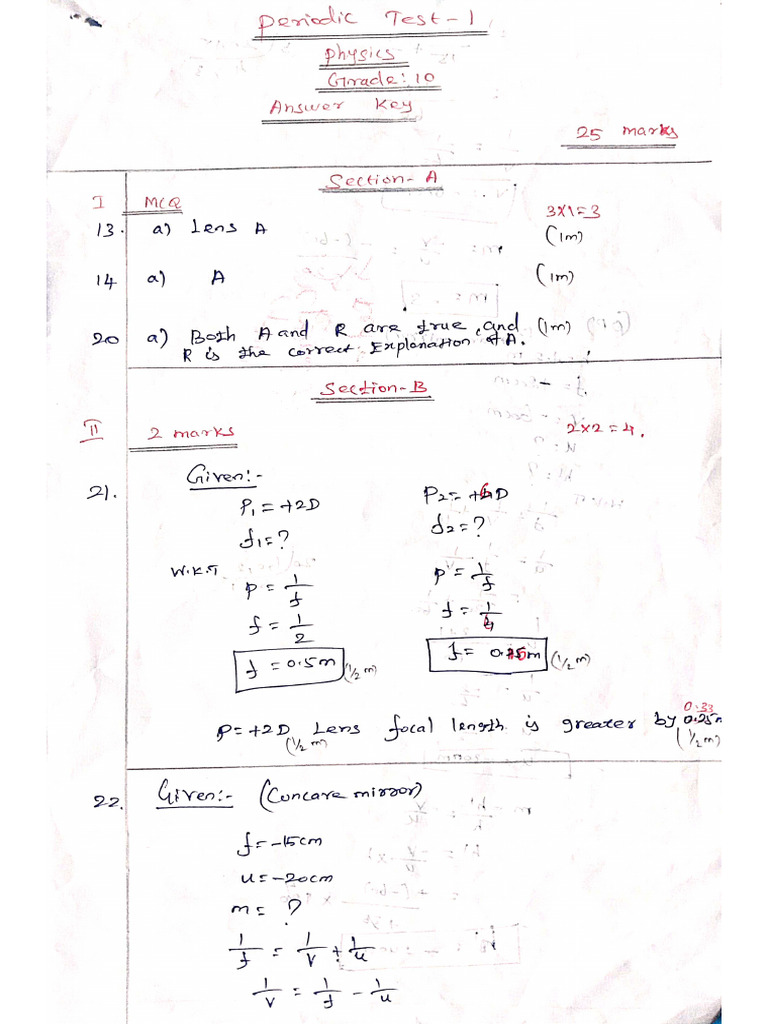 Periodic Test-1
Physics
Grade: 10
Answer Key
25 marks
Section-A
I MCQ 3X1=3
13. a) Lens A (1m)
14 a) A (1m)
20 a) Both A and R are true, and (1m)
R is the correct Explanation of A.
Section-B
II 2 marks 2x2=4.
21. Given:-
P₁ = +2D P₂ = +6D
f₁ = ? f₂ = ?
W.K.T
P = 1/f P = 1/f
f = 1/2 f = 1/6
f = 0.5m (1/2 m) f = 0.16m (1/2 m)
0.33
P=+2D Lens focal length is greater by 0.25m
(1/2 m) (1/2 m)
22. Given:- (Concave mirror)
f = -15cm
u = -20cm
m = ?
1/f = 1/v + 1/u
1/v = 1/f - 1/u